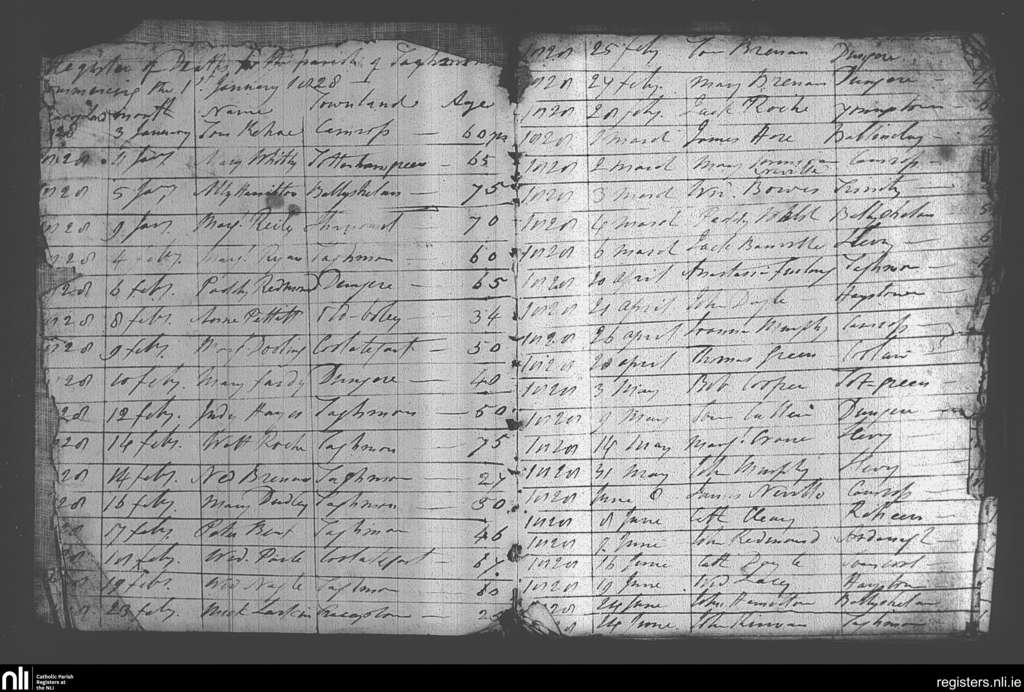 Register of Deaths for the parish of Taghmon
Commencing the 1st January 1828
month Name Townland Age
3 January Camross 60 yrs
1828 4 Jany Mary Whitty Tottenhamgreen 65
1828 5 Jany Ally Hamilton Ballyshelan 75
1828 9 Jany Margt Reily 70
1828 4 feby Margt Ryan Taghmon 60
1828 6 feby Paddy Redmond Dungere 65
1828 8 feby Anne Pettitt Old-boley 34
1828 9 feby Margt Dooling Coolatefart 50
1828 10 feby Mary fardy Dungere 40
28 12 feby Jude Hayes Taghmon 50
28 14 feby Watt Roche Taghmon 75
28 14 feby Ned Brennan Taghmon 27
28 16 feby Mary Dudley Taghmon 50
28 17 feby Peter Bent Taghmon 46
18 feby Wid. Coolatefart
19 feby Wid. Nagle Taghmon 80
23 feby Mick Larkin
1828 25 feby Tom Brennan Dungere
1828 27 feby Mary Brennan Dungere
1828 28 feby Jack Roche Youngstown
1828 1 March James Hore
1828 2 March Mary Camross
1828 3 March Wm. Bowes Trinity
1828 4 March Paddy Walsh Ballyshelan
1828 6 March Jack Hevy
1828 20 april Anastasia Furlong Taghmon
1828 21 april John Doyle Haystown
1828 26 april Joanna Murphy Camross
1828 28 april Thomas Green
1828 3 May Bob Cooper Tot-green
1828 9 May Tom Cullen Dungere
1828 14 May Margt Crane Hevy
1828 31 May John Murphy Hevy
1828 June 8 James Neville Camross
1828 8 June Cath Cleary Raheen
1828 9 June Tom Redmond
1828 16 June Cath Doyle
1828 19 June Lacey Haystown
28 24 June John Hamilton Ballyshelan
8 24 June John Kirwan Taghmon
nli
Catholic Parish
Registers at
the NLI
registers.nli.ie